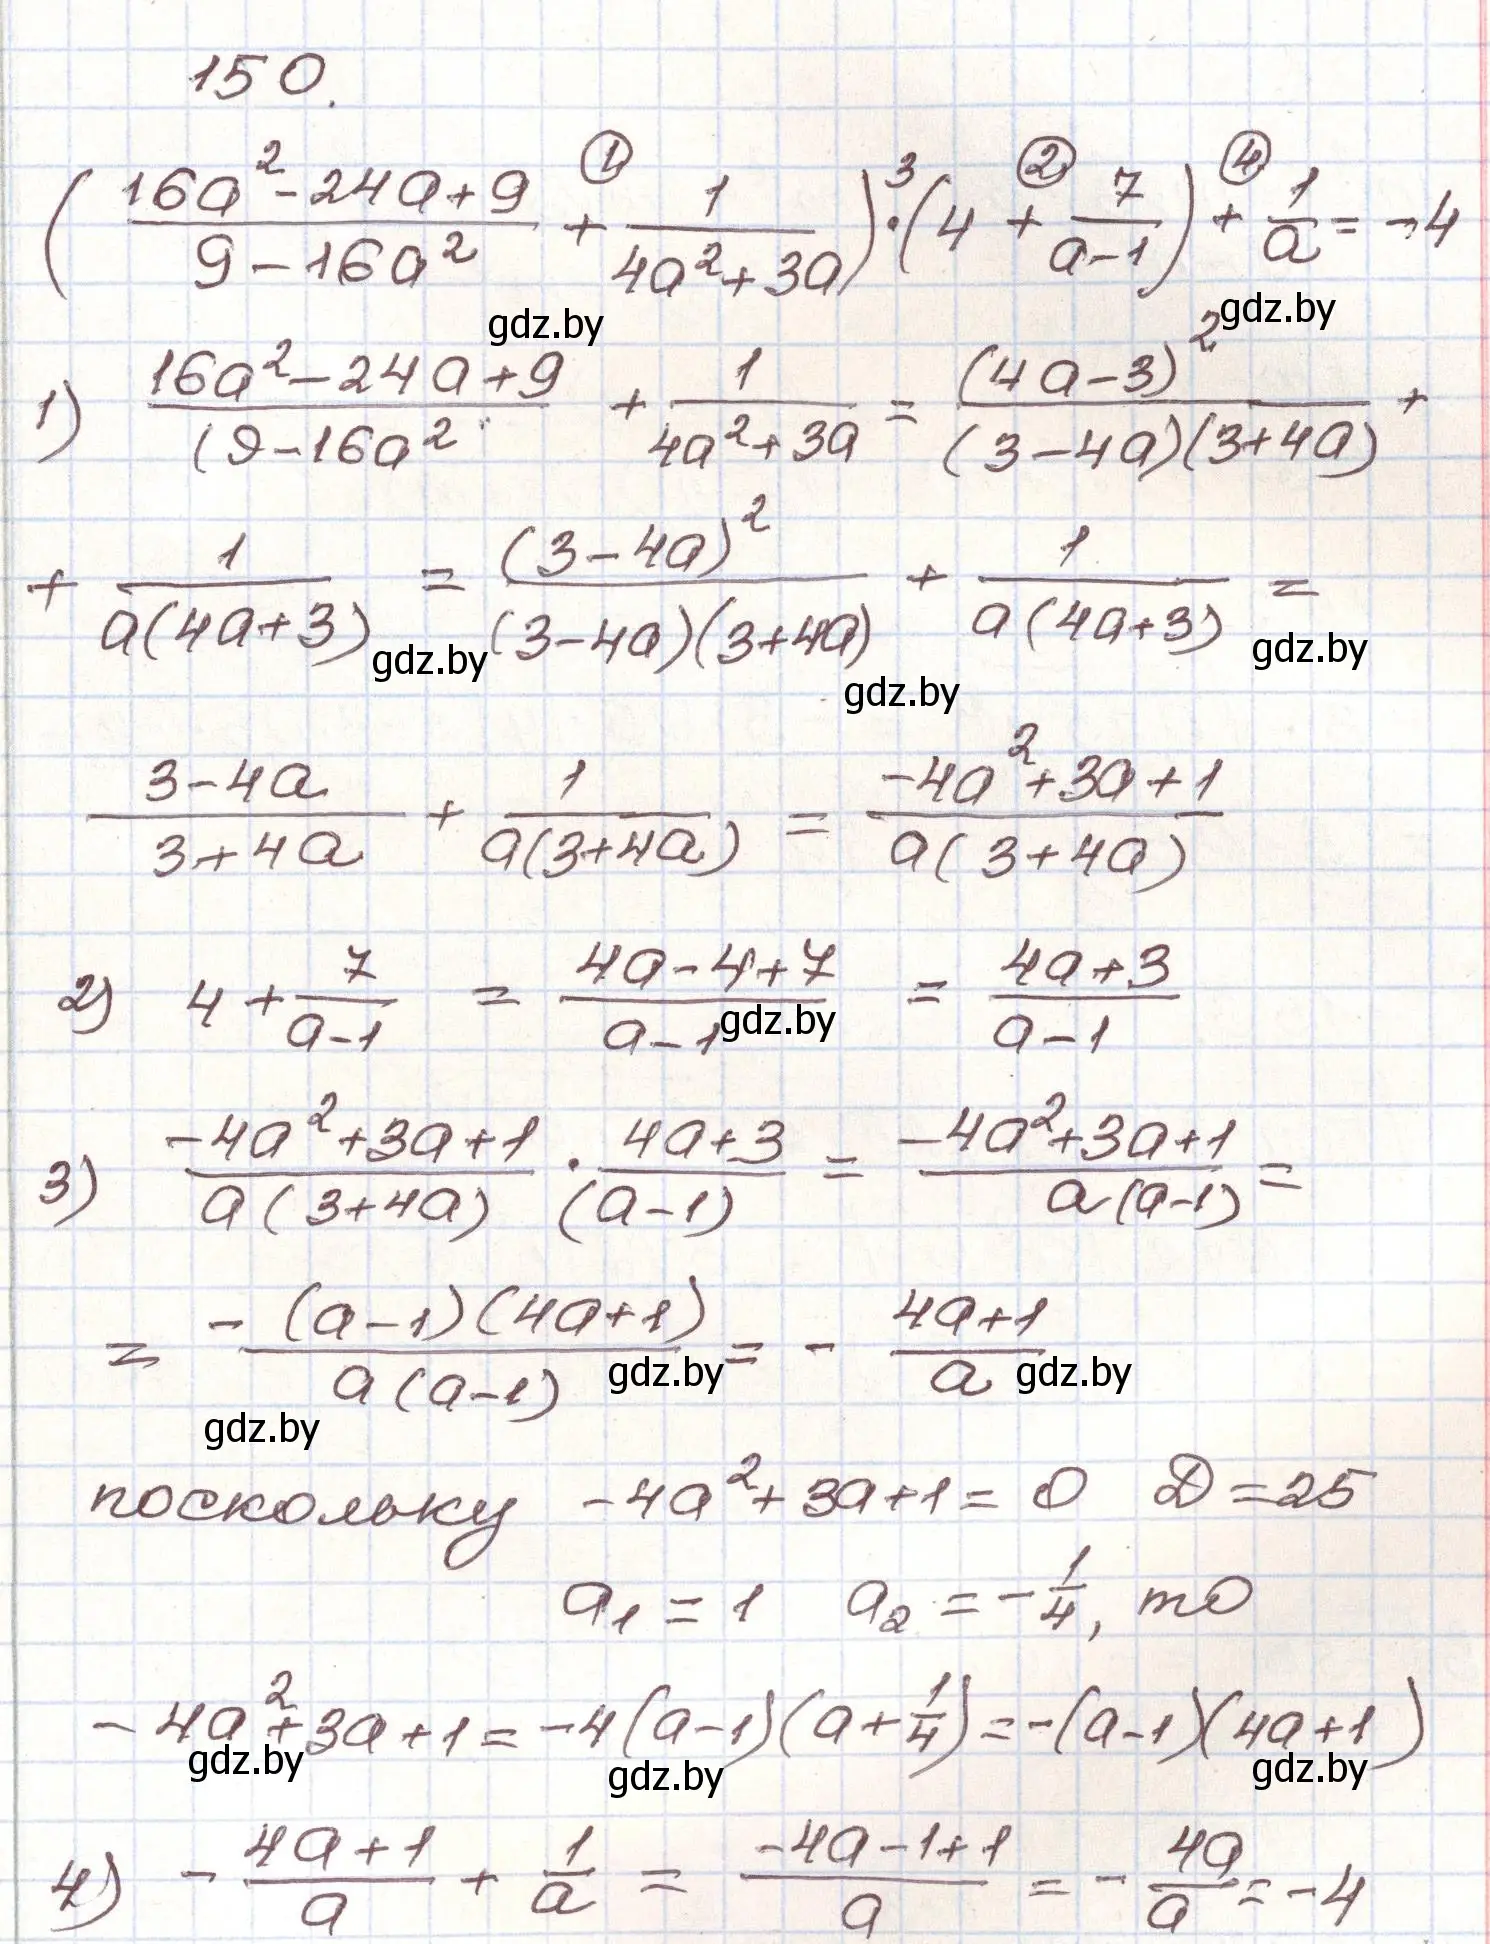 150.
① ③ ② ④
( (16a² - 24a + 9)/(9 - 16a²) + 1/(4a² + 3a) ) · (4 + 7/(a-1)) + 1/a = -4
gdz.by gdz.by
1) (16a² - 24a + 9)/((9 - 16a²) + 1/(4a² + 3a) = (4a-3)²/((3-4a)(3+4a)) +
+ 1/(a(4a+3)) = (3-4a)²/((3-4a)(3+4a)) + 1/(a(4a+3)) =
gdz.by gdz.by gdz.by
(3-4a)/(3+4a) + 1/(a(3+4a)) = (-4a² + 3a + 1)/(a(3+4a))
2) 4 + 7/(a-1) = (4a-4+7)/(a-1) = (4a+3)/(a-1)
gdz.by
3) (-4a² + 3a + 1)/(a(3+4a)) · (4a+3)/((a-1)) = (-4a² + 3a + 1)/(a(a-1)) =
= (-(a-1)(4a+1))/(a(a-1)) = - (4a+1)/a
gdz.by gdz.by gdz.by
поскольку -4a² + 3a + 1 = 0 D = 25
a₁ = 1 a₂ = -1/4, то
-4a² + 3a + 1 = -4(a-1)(a + 1/4) = -(a-1)(4a+1)
gdz.by gdz.by gdz.by
4) - (4a+1)/a + 1/a = (-4a-1+1)/a = - 4a/a = -4